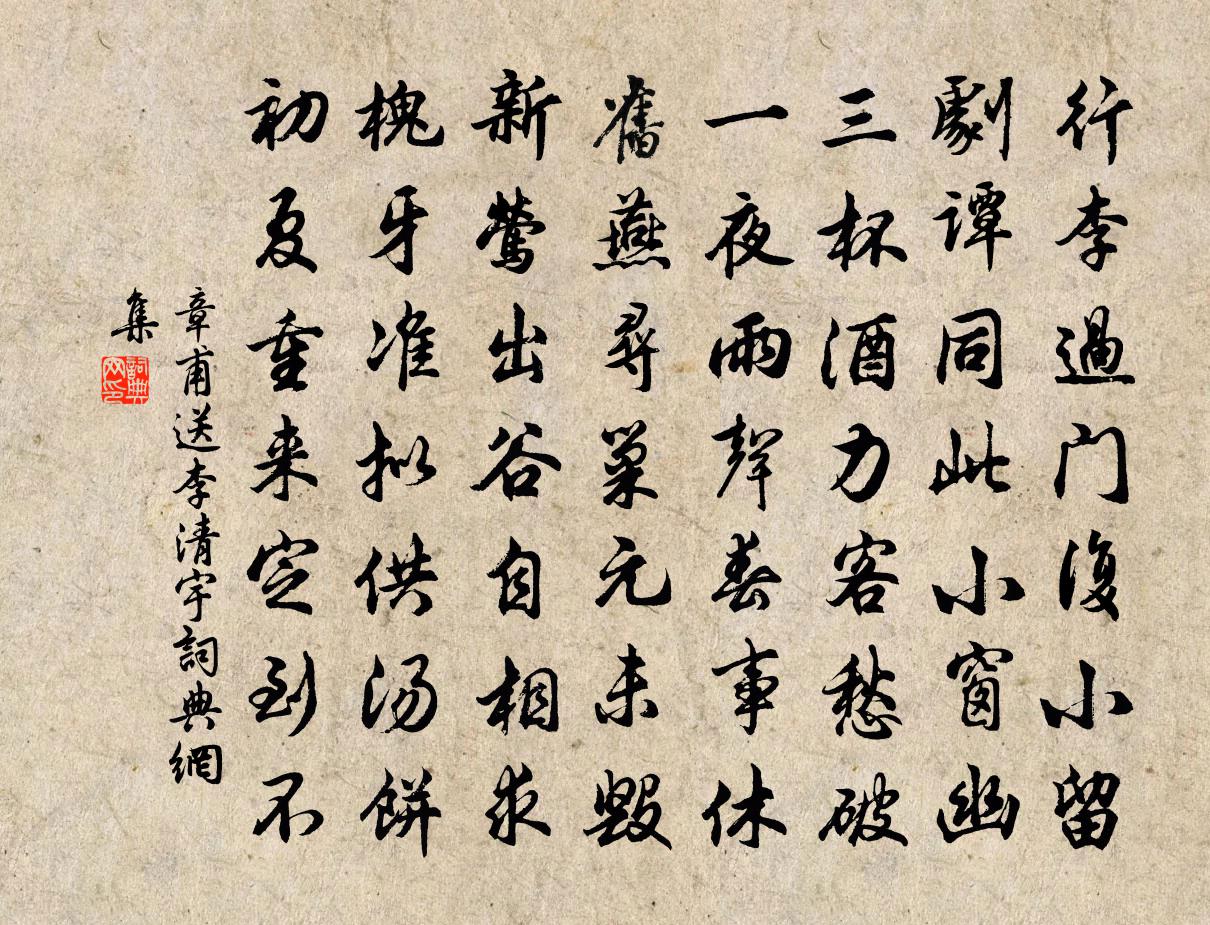 行李過门復小留
劇譚同此小窗幽
三杯酒力客愁破
一夜雨聲春事休
舊燕尋巢元未毀
新鶯出谷自相求
槐牙准拟供汤餅
初夏重来定到不
章甫送李清宇詞典網
集
詞典网印